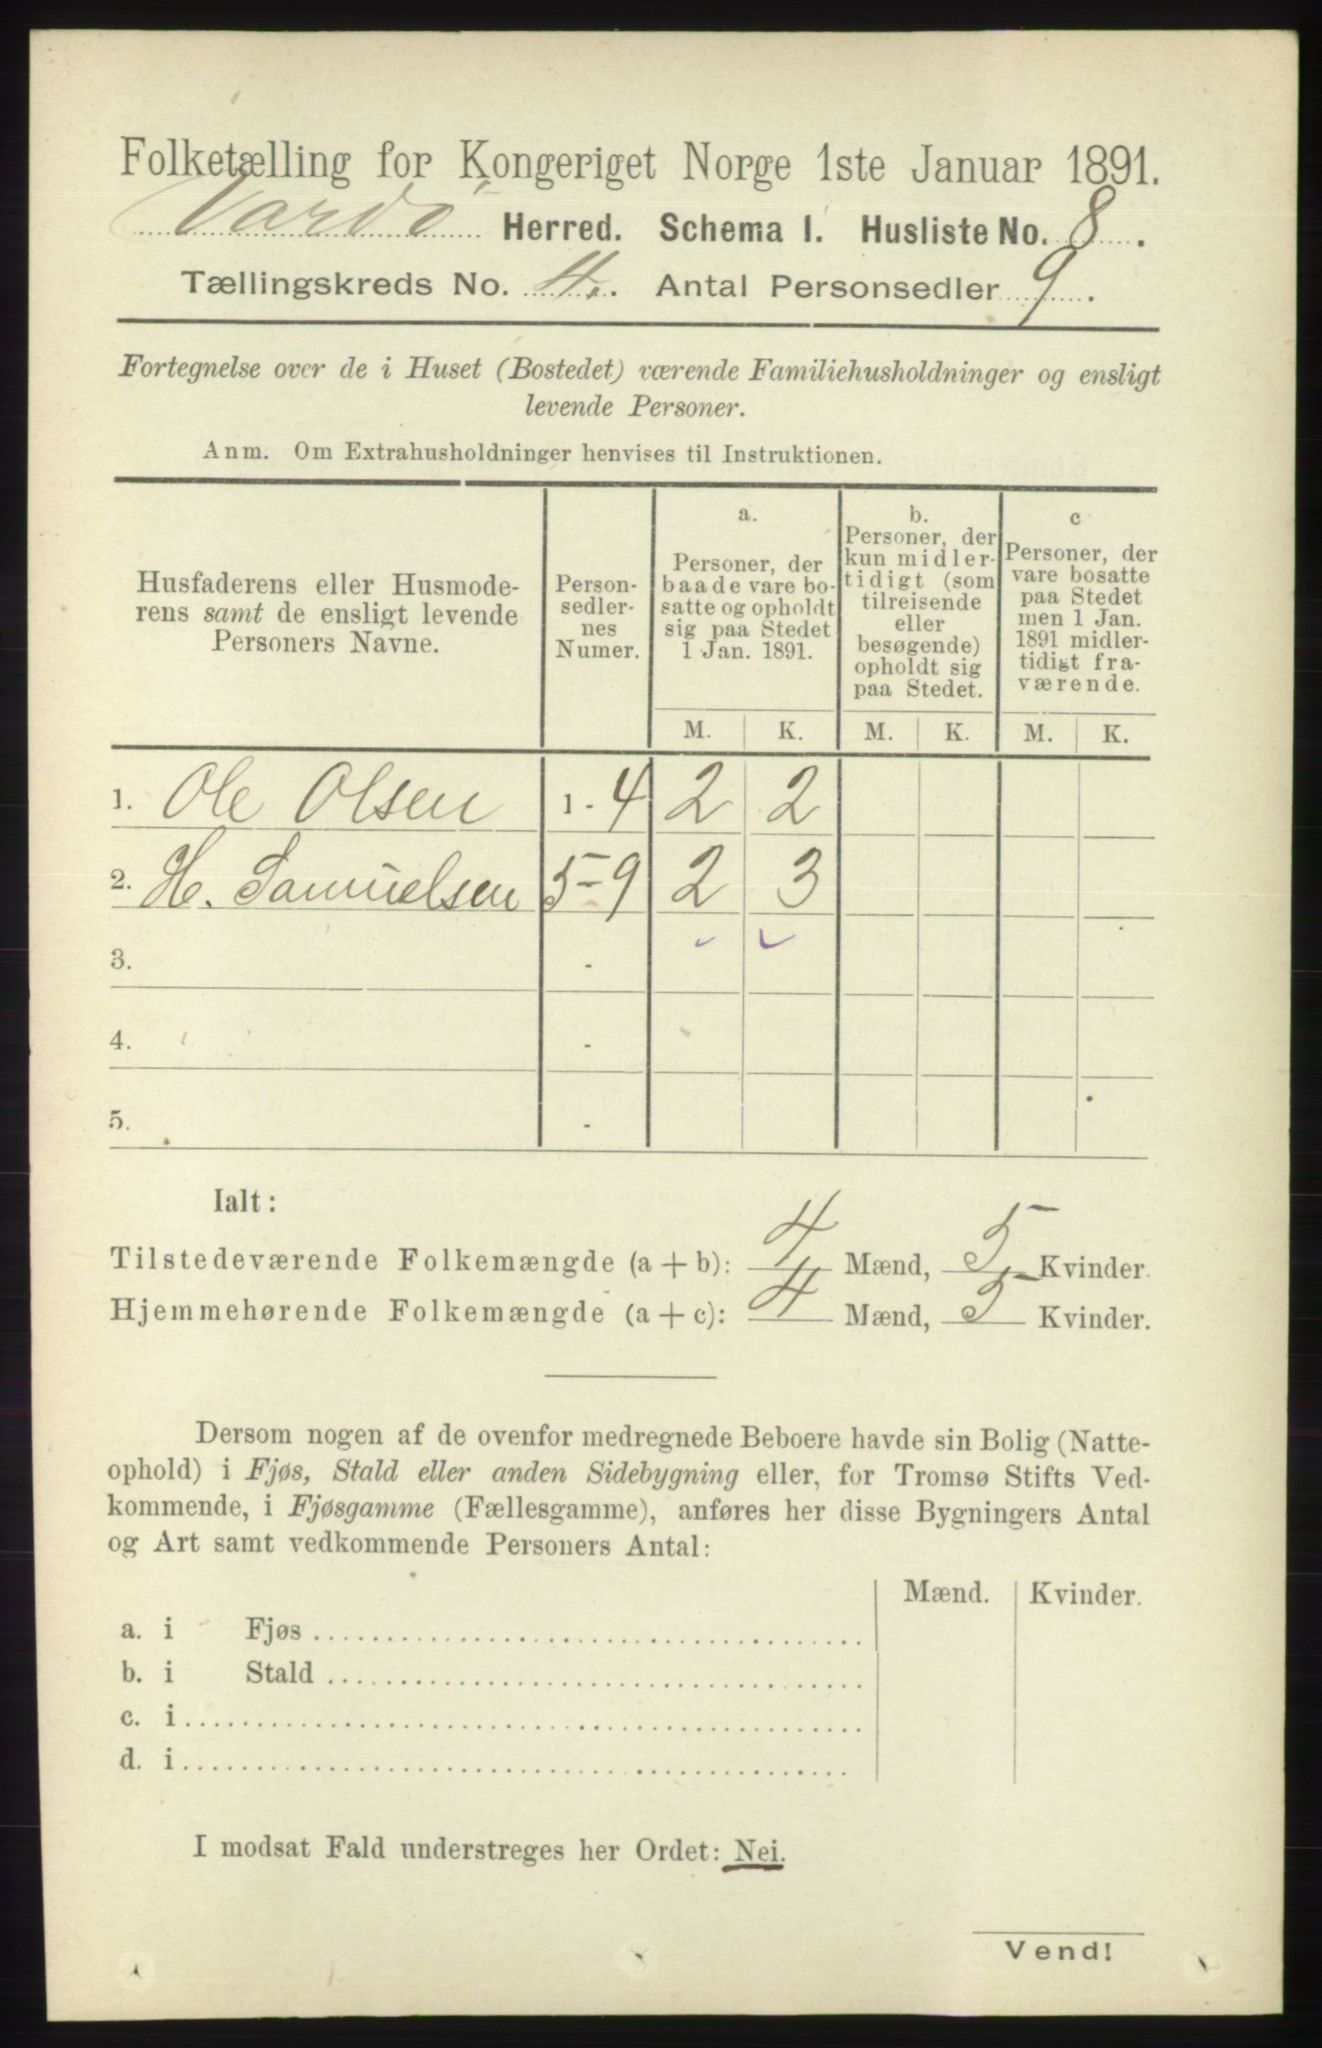 Folketælling for Kongeriget Norge 1ste Januar 1891.
Vardö Herred. Schema I. Husliste No. 8.
Tællingskreds No. 4. Antal Personsedler 9.
Fortegnelse over de i Huset (Bostedet) værende Familiehusholdninger og ensligt
levende Personer.
Anm. Om Extrahusholdninger henvises til Instruktionen.
Husfaderens eller Husmode-
rens samt de ensligt levende
Personers Navne.
Person-
sedler-
nes
Numer.
a.
Personer, der
baade vare bo-
satte og opholdt
sig paa Stedet
1 Jan. 1891.
b.
Personer, der
kun midler-
tidigt (som
tilreisende
eller
besøgende)
opholdt sig
paa Stedet.
c
Personer, der
vare bosatte
paa Stedet
men 1 Jan.
1891 midler-
tidigt fra-
værende.
M. K. M. K. M. K.
1. Ole Olsen 1 - 4 2 2
2. H. Samuelsen 5 - 9 2 3
3. -
4. -
5. -
Ialt:
Tilstedeværende Folkemængde (a + b): 4 Mænd, 5 Kvinder.
Hjemmehørende Folkemængde (a + c): 4 Mænd, 5 Kvinder.
Dersom nogen af de ovenfor medregnede Beboere havde sin Bolig (Natte-
ophold) i Fjøs, Stald eller anden Sidebygning eller, for Tromsø Stifts Ved-
kommende, i Fjøsgamme (Fællesgamme), anføres her disse Bygningers Antal
og Art samt vedkommende Personers Antal:
Mænd. Kvinder.
a. i Fjøs
b. i Stald
c. i
d. i
I modsat Fald understreges her Ordet: Nei.
Vend!